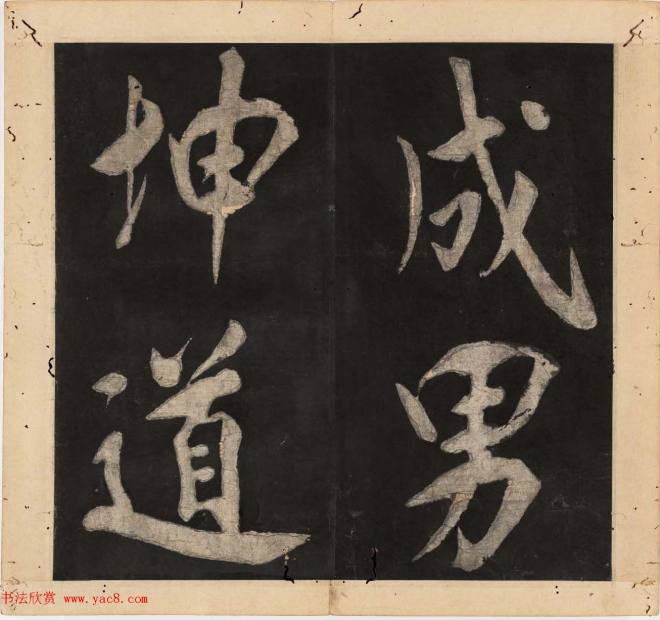 成男
坤道
书法欣赏 www.yac8.com